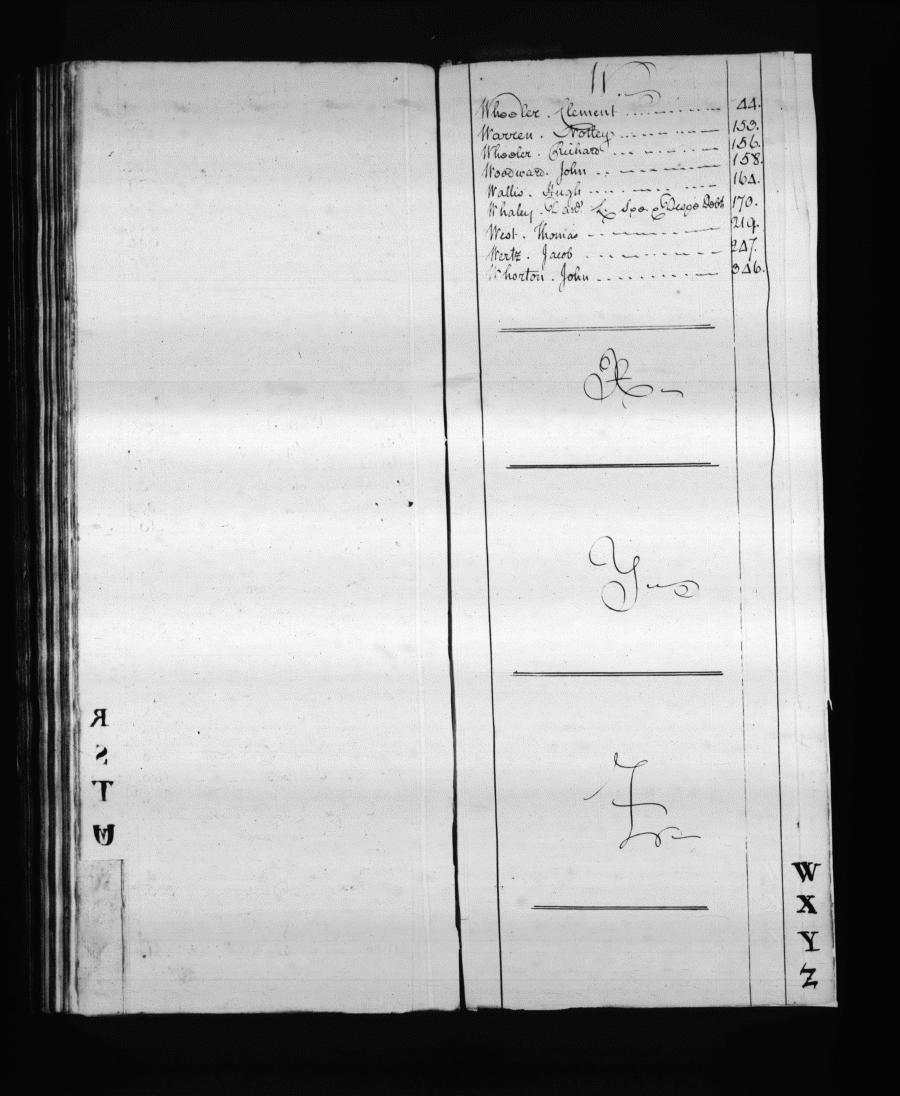 W.
Wheeler. Clement 44.
Warren. Notley 153.
Wheeler. Richard 156.
Woodward. John 158.
Wallis. Hugh 164.
Whaley. 170.
West. Thomas 219.
Wertz. Jacob 247.
Whorton. John 346.
X
Y
Z
R
S
T
U
W
X
Y
Z